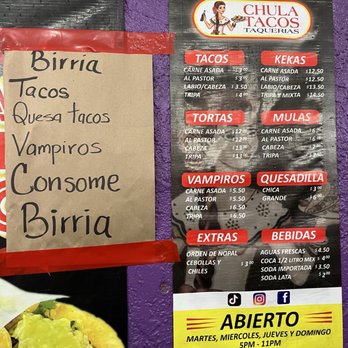 Birria
Tacos
Quesa tacos
Vampiros
Consome
Birria
CHULA
TACOS
TAQUERIAS
TACOS
CARNE ASADA $3.00
AL PASTOR $3
LABIO/CABEZA $3.50
TRIPA $4
KEKAS
CARNE ASADA $12.50
AL PASTOR $12.50
LABIO/CABEZA $13.50
TRIPA Y MIXTA $14.50
TORTAS
CARNE ASADA $12
AL PASTOR $12
CABEZA $13
TRIPA $13
MULAS
CARNE ASADA
AL PASTOR
CABEZA
TRIPA
VAMPIROS
CARNE ASADA $5.50
AL PASTOR $5.50
CABEZA $6.50
TRIPA $6.50
QUESADILLA
CHICA $3
GRANDE $6
EXTRAS
ORDEN DE NOPAL
CEBOLLAS Y
CHILES $3
BEBIDAS
AGUAS FRESCAS $4.50
COCA 1/2 LITRO MEX $4
SODA IMPORTADA $3.50
SODA LATA $2
ABIERTO
MARTES, MIERCOLES, JUEVES Y DOMINGO
5PM - 11PM